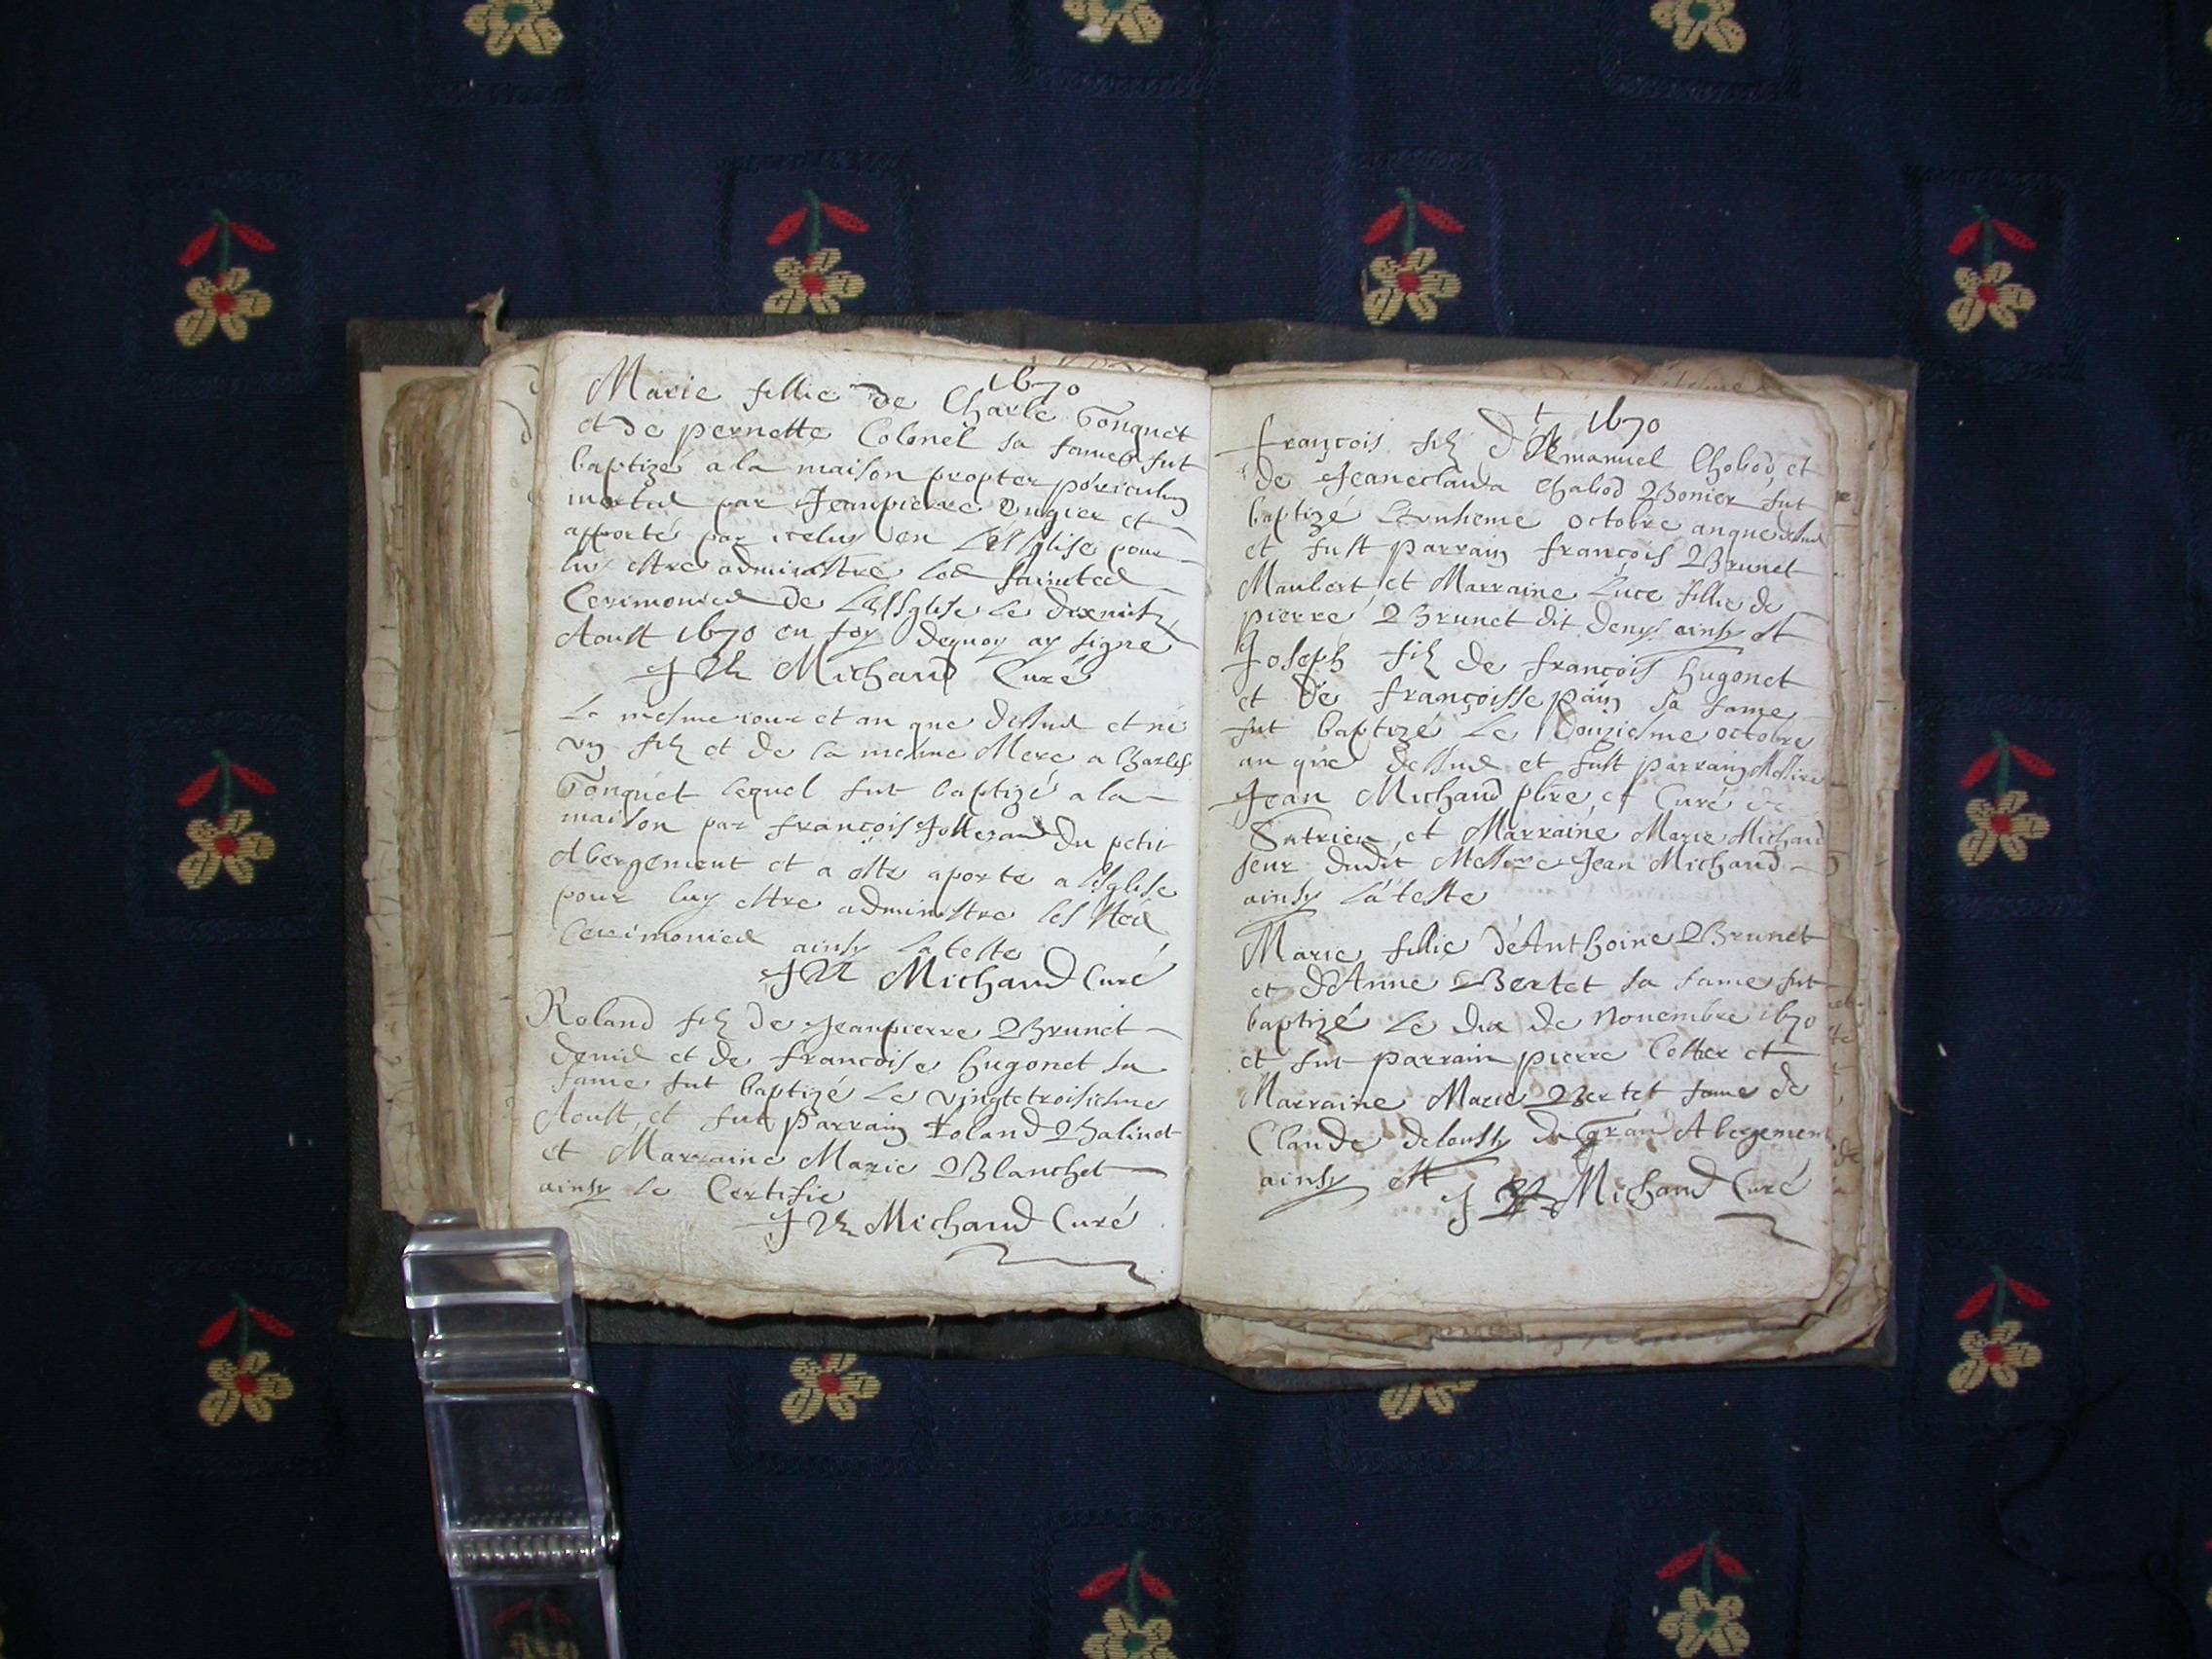 1670
Marie fillie de Charle Tonquet
et de pernette Colonel sa fame fut
baptizé a la maison propter periculum
mortis par Jeanpierre Dugier et
apporté par iceluy en L'esglise pour
luy estre administré les sainctes
Cerimonies de L'Esglise le dixnuit
Aoust 1670 en foy dequoy ay signé
J Michaud Curé
Le mesme iour et an que dessus et né
un filz et de la mesme Mere a Charles
Tonquet lequel fut baptizé a la
maison par françois Jolterand du petit
Abergement et a este aporte a l'Esglise
pour luy estre administre les stes
Cerimonies ainsy l'ateste
J Michaud Curé
Roland filz de Jeanpierre Brunet
denis et de francoise hugonet sa
fame fut baptizé Le vingtetroisiesme
Aoust, et fut parrain Roland Balinot
et Marraine Marie Blanchet
ainsy le Certifie
J Michaud Curé
1670
françois filz d'Emanuel Chobod, et
de Jeaneclauda Chabod Bonier fut
baptizé L'onsieme octobre an que dessus
et fust parrain françois Brunet
Maubert et Marraine Luce fillie de
pierre Brunet dit denys ainsy est
Joseph filz de françois hugonet
et de françoisse pain sa fame
fut baptizé Le Douziesme octobre
an que dessus et fust parrain Messire
Jean Michaud pbre et Curé de
Sutrieu, et Marraine Marie Michaud
seur dudit Messire Jean Michaud
ainsy L'ateste
Marie fillie d'Anthoine Brunet
et d'Anne Bertet sa fame fut
baptizé Le dix de Nouembre 1670
et fut parrain pierre Cottier et
Marraine Marie Bertet fame de
Claude delousty du Grand Abergement
ainsy est J Michaud Curé